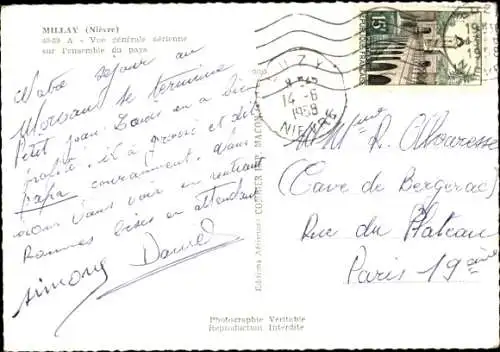 MILLAY (Nièvre)
49-59 A - Vue générale aérienne
sur l'ensemble du pays
LUZY
14-6
1958
NIEVRE
15F
Notre séjour au
Morvan se termine
Petit Jean-Louis en a bien
profité, il a grossi et dit
papa couramment. Nous
irons vous voir en rentrant
Bonnes bises en attendant
Simone Daniel
Editions Aériennes COMBIER IMP. MACON
M et Mme R. Alvaresse
(Cave de Bergerac)
Rue du Plateau
Paris 19ème
Photographie Véritable
Reproduction Interdite